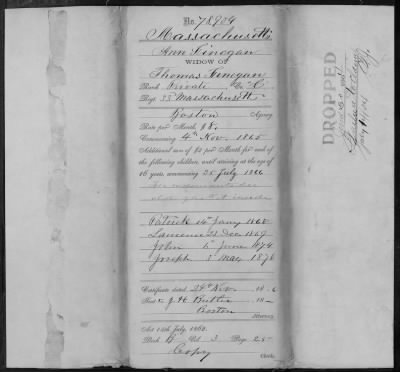 No. 78909
Massachusetts
Ann Finegan
WIDOW OF
Thomas Finegan
Rank Private Co. C
Regt. 33 Massachusetts
Boston Agency
Rate per Month $8.
Commencing 4th Nov. 1865
Additional sum of $2 per Month for each of
the following children, until arriving at the age of
16 years, commencing 25 July 1866
Patrick 14th Jany 1868
Lawrence Dec 1869
John 6" June 1874
Joseph 5" May 1876
Certificate dated 29th Nov. 186
Sent to J. H. Butler 18
Boston Attorney
Act 14th July, 1862.
Book B Vol. 3 Page 25
Copy Clerk.
DROPPED